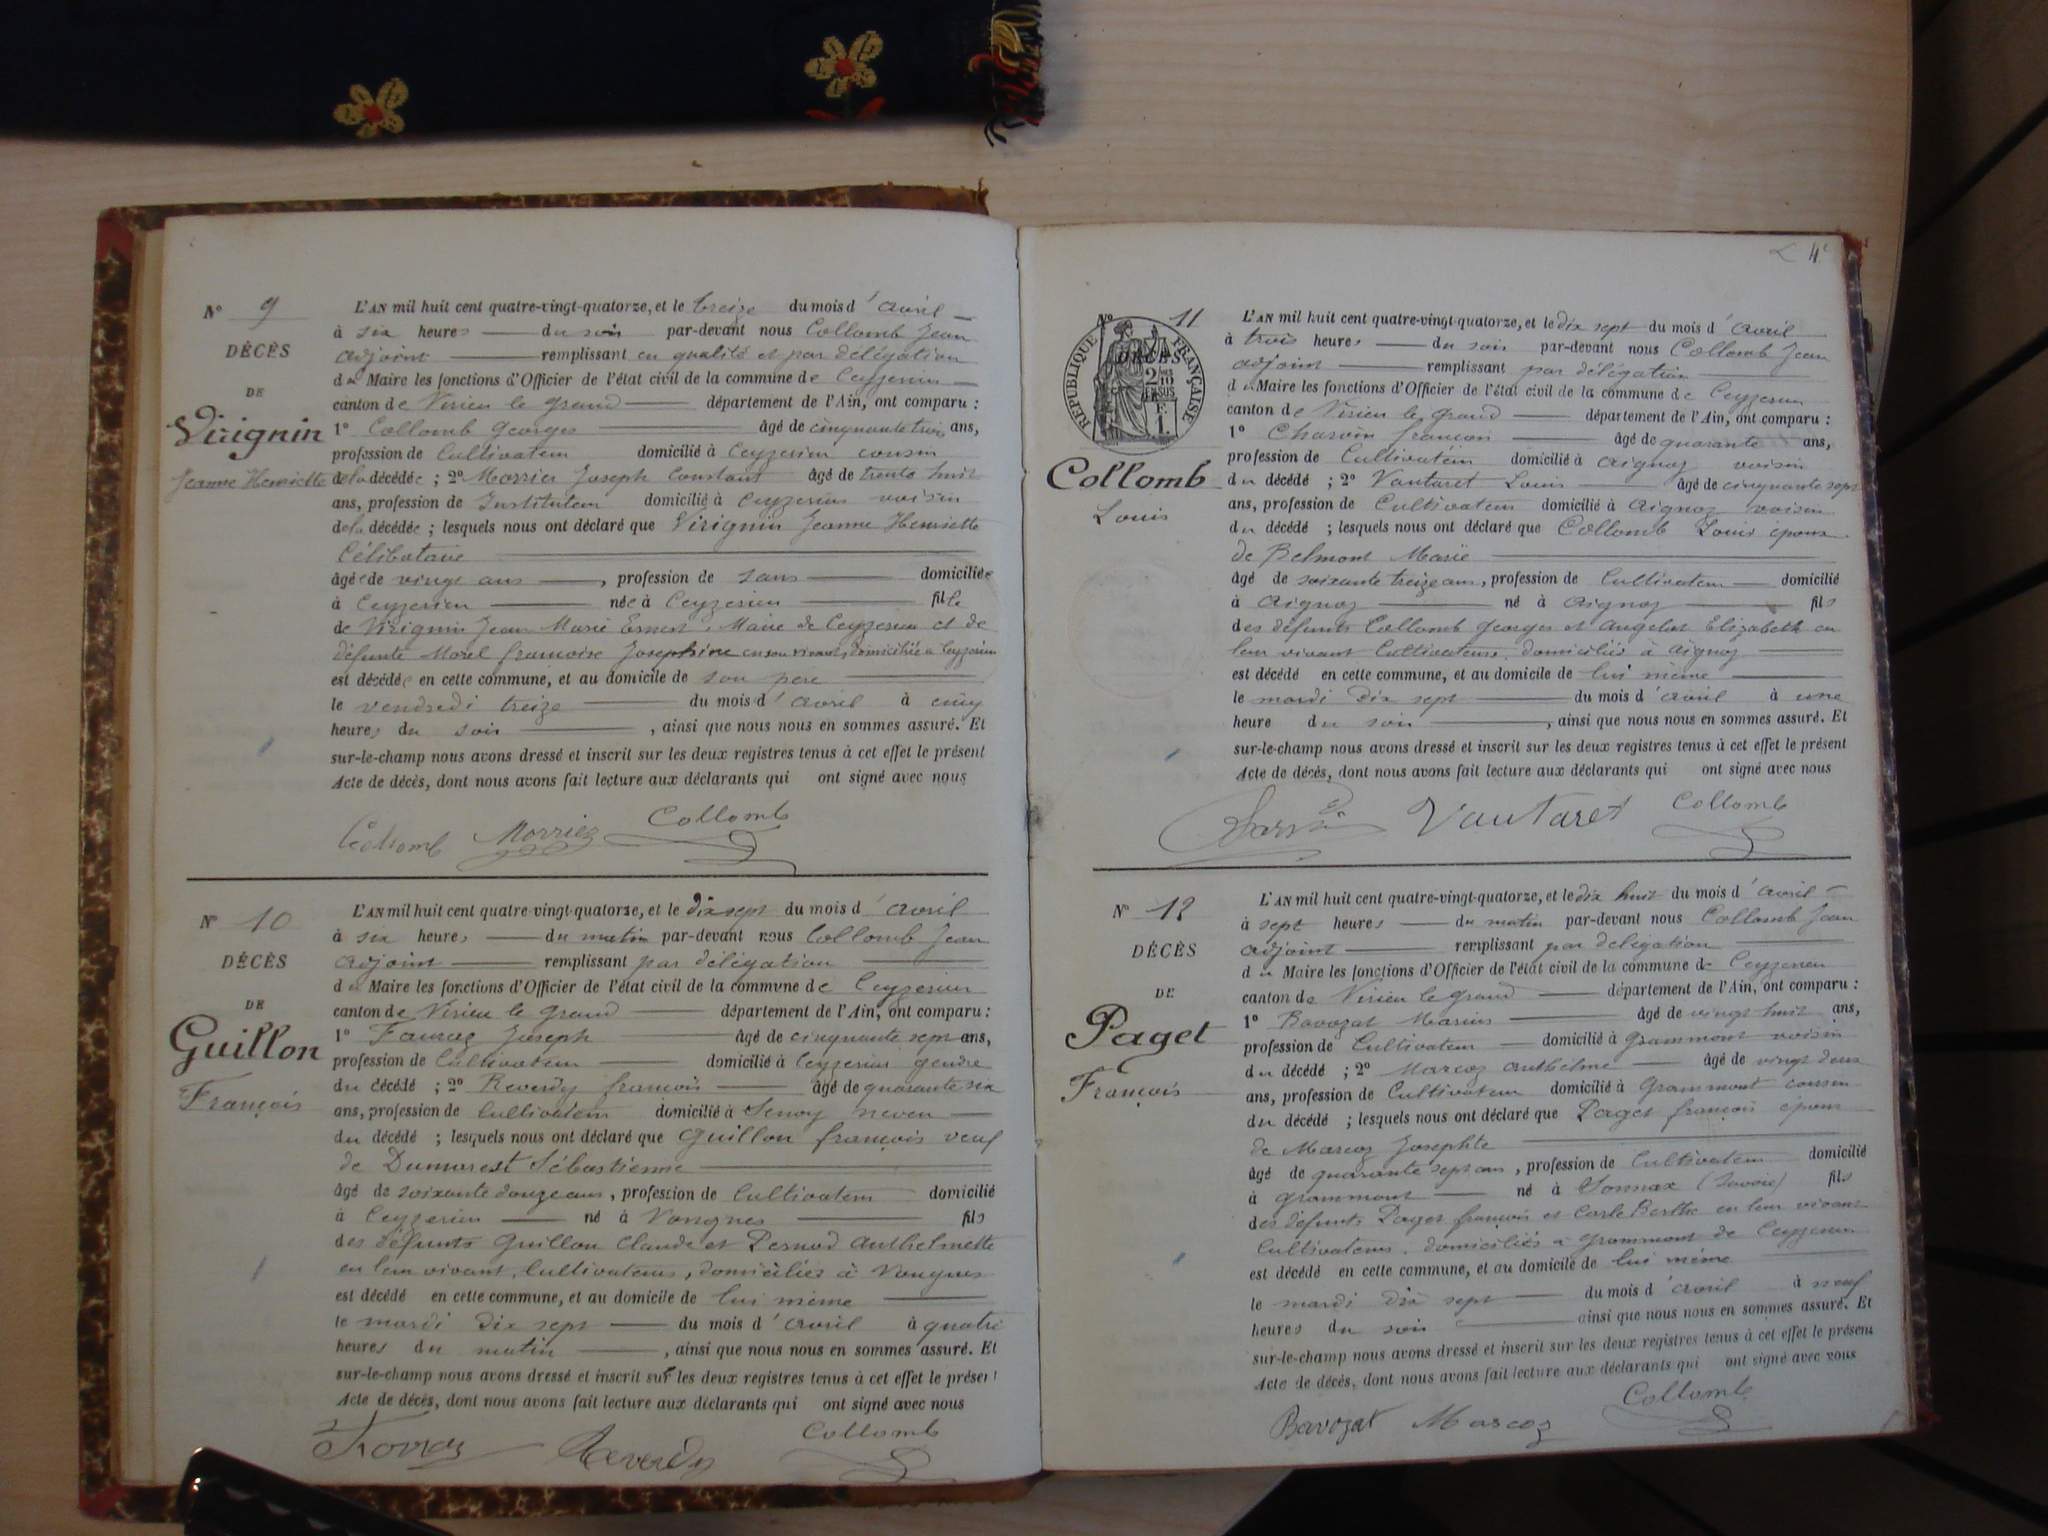 N° 9
DÉCÈS
DE
Virignin
Jeanne Henriette
L'AN mil huit cent quatre-vingt-quatorze, et le treize du mois d'avril
à six heures du soir par-devant nous Collomb Jean
adjoint remplissant en qualité et par délégation
du Maire les fonctions d'Officier de l'état civil de la commune de Ceyzerieu
canton de Virieu le grand département de l'Ain, ont comparu :
1° Collomb Georges âgé de cinquante trois ans,
profession de Cultivateur domicilié à Ceyzerieu cousin
de la décédée ; 2° Morrier Joseph Constant âgé de trente huit
ans, profession de Instituteur domicilié à Ceyzerieu voisin
de la décédée ; lesquels nous ont déclaré que Virignin Jeanne Henriette
Célibataire
âgée de vingt ans , profession de sans domiciliée
à Ceyzerieu née à Ceyzerieu fille
de Virignin Jean Marie Ernest, Maire de Ceyzerieu et de
défunte Morel françoise Josephine en son vivant domiciliée à Ceyzerieu
est décédée en cette commune, et au domicile de son père
le vendredi treize du mois d'avril à cinq
heures du soir , ainsi que nous nous en sommes assuré. Et
sur-le-champ nous avons dressé et inscrit sur les deux registres tenus à cet effet le présent
Acte de décès, dont nous avons fait lecture aux déclarants qui ont signé avec nous
Collomb Morriez Collomb
N° 10
DÉCÈS
DE
Guillon
François
L'AN mil huit cent quatre-vingt-quatorze, et le dix sept du mois d'avril
à six heures du matin par-devant nous Collomb Jean
adjoint remplissant par délégation
du Maire les fonctions d'Officier de l'état civil de la commune de Ceyzerieu
canton de Virieu le grand département de l'Ain, ont comparu :
1° Favraz Joseph âgé de cinquante sept ans,
profession de Cultivateur domicilié à Ceyzerieu gendre
du décédé ; 2° Reverdy françois âgé de quarante six
ans, profession de Cultivateur domicilié à Senoy neveu
du décédé ; lesquels nous ont déclaré que Guillon françois veuf
de Dumarest Sébastienne
âgé de soixante douze ans, profession de Cultivateur domicilié
à Ceyzerieu né à Vongnes fils
des défunts Guillon Claude et Pernod Anthelmette
en leur vivant, Cultivateurs, domiciliés à Vongnes
est décédé en cette commune, et au domicile de lui même
le mardi dix sept du mois d'avril à quatre
heures du matin , ainsi que nous nous en sommes assuré. Et
sur-le-champ nous avons dressé et inscrit sur les deux registres tenus à cet effet le présent
Acte de décès, dont nous avons fait lecture aux déclarants qui ont signé avec nous
Reverdy Collomb
4e
N° 11
DÉCÈS
RÉPUBLIQUE FRANÇAISE
Collomb
Louis
L'AN mil huit cent quatre-vingt-quatorze, et le dix sept du mois d'avril
à trois heures du soir par-devant nous Collomb Jean
adjoint remplissant par délégation
du Maire les fonctions d'Officier de l'état civil de la commune de Ceyzerieu
canton de Virieu le grand département de l'Ain, ont comparu :
1° Charvin françois âgé de quarante ans,
profession de Cultivateur domicilié à Aignoz voisin
du décédé ; 2° Vautaret Louis âgé de cinquante sept
ans, profession de Cultivateur domicilié à Aignoz voisin
du décédé ; lesquels nous ont déclaré que Collomb Louis époux
de Belmont Marie
âgé de soixante treize ans, profession de Cultivateur domicilié
à Aignoz né à Aignoz fils
des défunts Collomb Georges et Angelot Elizabeth en
leur vivant Cultivateurs domiciliés à Aignoz
est décédé en cette commune, et au domicile de lui même
le mardi dix sept du mois d'avril à une
heure du soir , ainsi que nous nous en sommes assuré. Et
sur-le-champ nous avons dressé et inscrit sur les deux registres tenus à cet effet le présent
Acte de décès, dont nous avons fait lecture aux déclarants qui ont signé avec nous
Charvin Vautaret Collomb
N° 12
DÉCÈS
DE
Paget
François
L'AN mil huit cent quatre-vingt-quatorze, et le dix huit du mois d'avril
à sept heures du matin par-devant nous Collomb Jean
adjoint remplissant par délégation
du Maire les fonctions d'Officier de l'état civil de la commune de Ceyzerieu
canton de Virieu le grand département de l'Ain, ont comparu :
1° Bavozat Marius âgé de vingt huit ans,
profession de Cultivateur domicilié à Grammont voisin
du décédé ; 2° Marcoz Anthelme âgé de vingt deux
ans, profession de Cultivateur domicilié à Grammont cousin
du décédé ; lesquels nous ont déclaré que Paget françois époux
de Marcoz Josephte
âgé de quarante sept ans, profession de Cultivateur domicilié
à Grammont né à Sonnax (Savoie) fils
des défunts Paget françois et Carle Berthe en leur vivant
Cultivateurs, domiciliés à Grammont de Ceyzerieu
est décédé en cette commune, et au domicile de lui même
le mardi dix sept du mois d'avril à neuf
heures du soir ainsi que nous nous en sommes assuré. Et
sur-le-champ nous avons dressé et inscrit sur les deux registres tenus à cet effet le présent
Acte de décès, dont nous avons fait lecture aux déclarants qui ont signé avec nous
Bavozat Marcoz Collomb